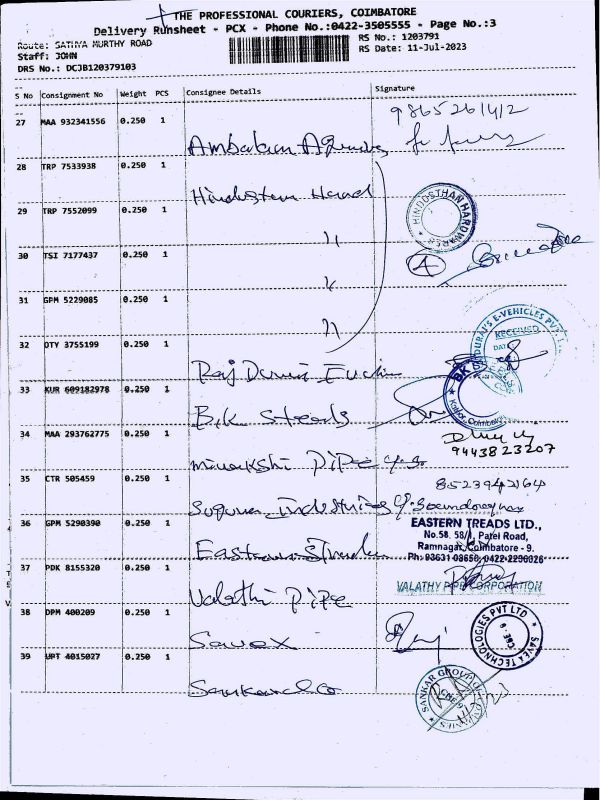 THE PROFESSIONAL COURIERS, COIMBATORE
Delivery Runsheet - PCX - Phone No.:0422-3505555 - Page No.:3
Route: SATHYA MURTHY ROAD
RS No.: 1203791
Staff: JOHN
RS Date: 11-Jul-2023
DRS No.: DCJB120379103
S No Consignment No Weight PCS Consignee Details Signature
27 MAA 932341556 0.250 1
9865261412
28 TRP 7533938 0.250 1
Hindustan Hard
HINDOSTHAN HARDWARES
29 TRP 7552099 0.250 1
"
30 TSI 7177437 0.250 1
4
"
31 GPM 5229085 0.250 1
"
E-VEHICLES PVT
RECEIVED
32 OTY 3755199 0.250 1
33 KUR 609182978 0.250 1
B.K Steels
BK
Coimbatore
34 MAA 293762775 0.250 1
9443823207
Minakshi Pipe
35 CTR 505459 0.250 1
8523942164
Suguna Industries
36 GPM 5290390 0.250 1
EASTERN TREADS LTD.,
No.58, 58/1, Patel Road,
Ramnagar, Coimbatore - 9.
Eastern Treads
37 PDK 8155320 0.250 1
VALATHY PIPE CORPORATION
Valathi Pipe
38 DPM 400209 0.250 1
Savex
SAVEX TECHNOLOGIES PVT LTD
39 UPT 4015027 0.250 1
Sankar & Co
SANKAR GROUP OF COMPANIES